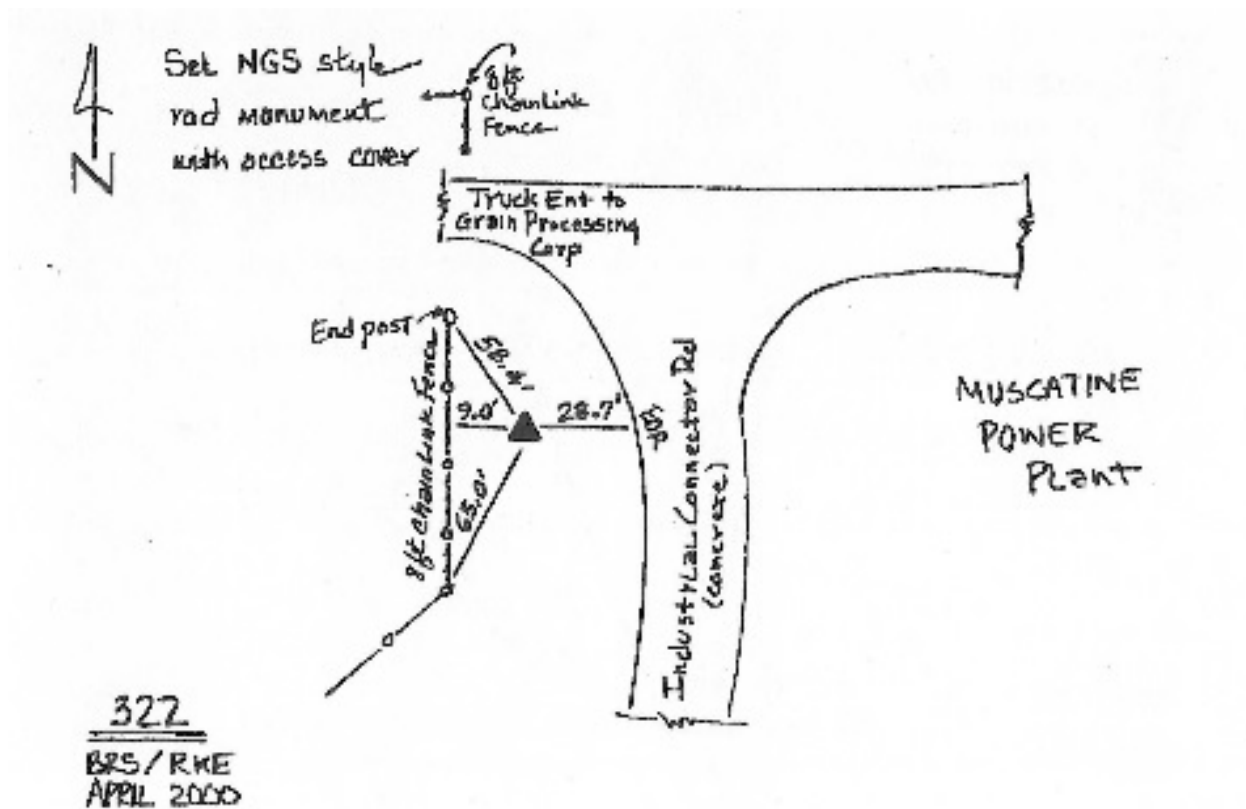 Set NGS style
rod monument
with access cover
8ft
Chainlink
Fence
N
Truck Ent to
Grain Processing
Corp
End post
58.4'
9.0'
28.7'
65.0'
8ft Chain Link Fence
Industrial Connector Rd
(concrete)
MUSCATINE
POWER
Plant
322
BRS/RKE
APRIL 2000